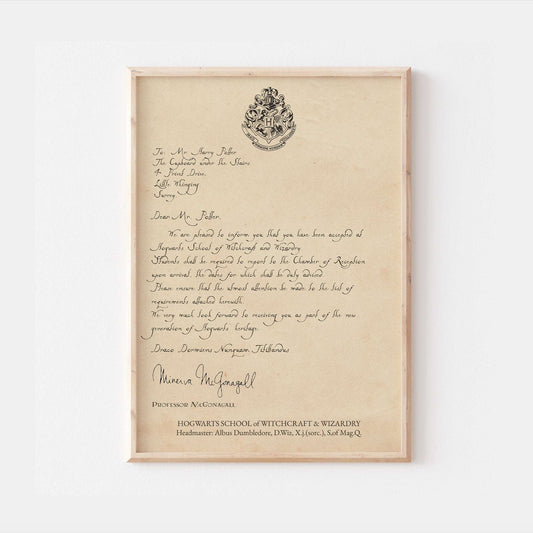 H
To: Mr. Harry Potter
The Cupboard under the Stairs
4 Privet Drive,
Little Whinging
Surrey
Dear Mr. Potter,
We are pleased to inform you that you have been accepted at
Hogwarts School of Witchcraft and Wizardry.
Students shall be required to report to the Chamber of Reception
upon arrival, the dates for which shall be duly advised
Please ensure that the utmost attention be made to the list of
requirements attached herewith.
We very much look forward to receiving you as part of the new
generation of Hogwarts heritage.
Draco Dormiens Nunquam Titillandus
Minerva McGonagall
PROFESSOR McGONAGALL
HOGWARTS SCHOOL of WITCHCRAFT & WIZARDRY
Headmaster: Albus Dumbledore, D.Wiz, X.j.(sorc.), S.of Mag.Q.